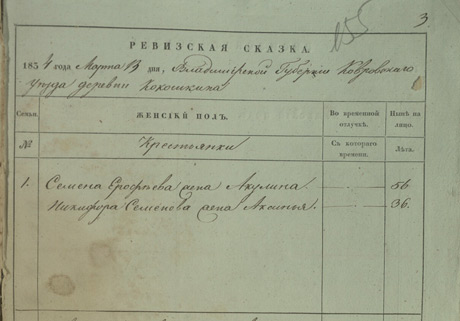 155
3
РЕВИЗСКАЯ СКАЗКА.
1834 года Марта 13 дня, Владимирской Губернiи Ковровскаго
Уезда деревни Кокошкина
Семьи. ЖЕНСКIЙ ПОЛЪ. Во временной отлучкѣ. Нынѣ на лицо.
№ Крестьянки Съ котораго времени. Лѣта.
1. Семена Ерофѣева жена Акулина. 56
Никифора Семенова жена Аксинья. 36.